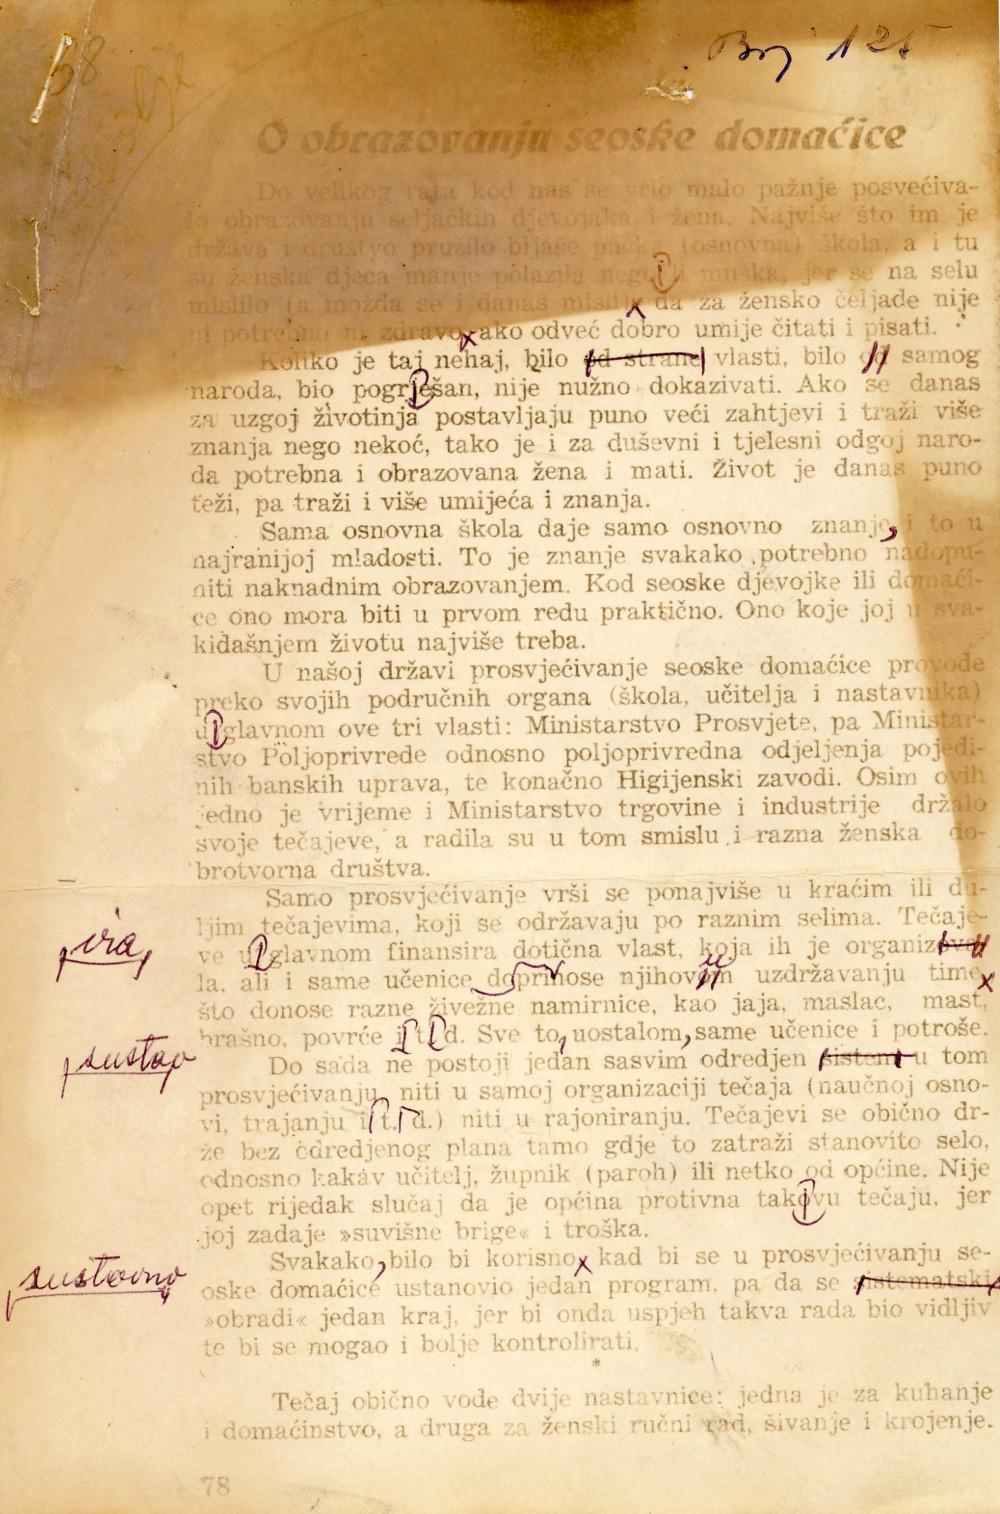 68
Broj 125
O obrazovanju seoske domaćice
Do velikog rata kod nas se vrlo malo pažnje posvećiva-
la obrazovanju seljačkih djevojaka i žena. Najviše što im je
država i društvo pružilo bijaše pučka (osnovna) škola, a i tu
su ženska djeca manje polazila nego li muška, jer se na selu
mislilo (a možda se i danas misli), da za žensko čeljade nije
ni potrebno ni zdravo, ako odveć dobro umije čitati i pisati.
Koliko je taj nehaj, bilo od strane vlasti, bilo od samog
naroda, bio pogrješan, nije nužno dokazivati. Ako se danas
za uzgoj životinja postavljaju puno veći zahtjevi i traži više
znanja nego nekoć, tako je i za duševni i tjelesni odgoj naro-
da potrebna i obrazovana žena i mati. Život je danas puno
teži, pa traži i više umijeća i znanja.
Sama osnovna škola daje samo osnovno znanje, i to u
najranijoj mladosti. To je znanje svakako potrebno nadopu-
niti naknadnim obrazovanjem. Kod seoske djevojke ili domaći-
ce ono mora biti u prvom redu praktično. Ono koje joj u sva-
kidašnjem životu najviše treba.
U našoj državi prosvjećivanje seoske domaćice provode
preko svojih područnih organa (škola, učitelja i nastavnika)
uglavnom ove tri vlasti: Ministarstvo Prosvjete, pa Ministar-
stvo Poljoprivrede odnosno poljoprivredna odjeljenja pojedi-
nih banskih uprava, te konačno Higijenski zavodi. Osim ovih
jedno je vrijeme i Ministarstvo trgovine i industrije držalo
svoje tečajeve, a radila su u tom smislu i razna ženska do-
brotvorna društva.
Samo prosvjećivanje vrši se ponajviše u kraćim ili du-
ljim tečajevima, koji se održavaju po raznim selima. Tečaje-
ira
ve uglavnom finansira dotična vlast, koja ih je organizova-
la, ali i same učenice doprinose njihovom uzdržavanju time
što donose razne živežne namirnice, kao jaja, maslac, mast,
brašno, povrće i t. d. Sve to, uostalom, same učenice i potroše.
sustav
Do sada ne postoji jedan sasvim odredjen sistem u tom
prosvjećivanju, niti u samoj organizaciji tečaja (naučnoj osno-
vi, trajanju i t. d.) niti u rajoniranju. Tečajevi se obično dr-
že bez odredjenog plana tamo gdje to zatraži stanovito selo,
odnosno kakav učitelj, župnik (paroh) ili netko od općine. Nije
opet rijedak slučaj da je općina protivna takovu tečaju, jer
joj zadaje »suvišne brige« i troška.
Svakako, bilo bi korisno, kad bi se u prosvjećivanju se-
sustavno
oske domaćice ustanovio jedan program, pa da se sistematski
»obradi« jedan kraj, jer bi onda uspjeh takva rada bio vidljiv
te bi se mogao i bolje kontrolirati.
*
Tečaj obično vode dvije nastavnice: jedna je za kuhanje
i domaćinstvo, a druga za ženski ručni rad, šivanje i krojenje.
78